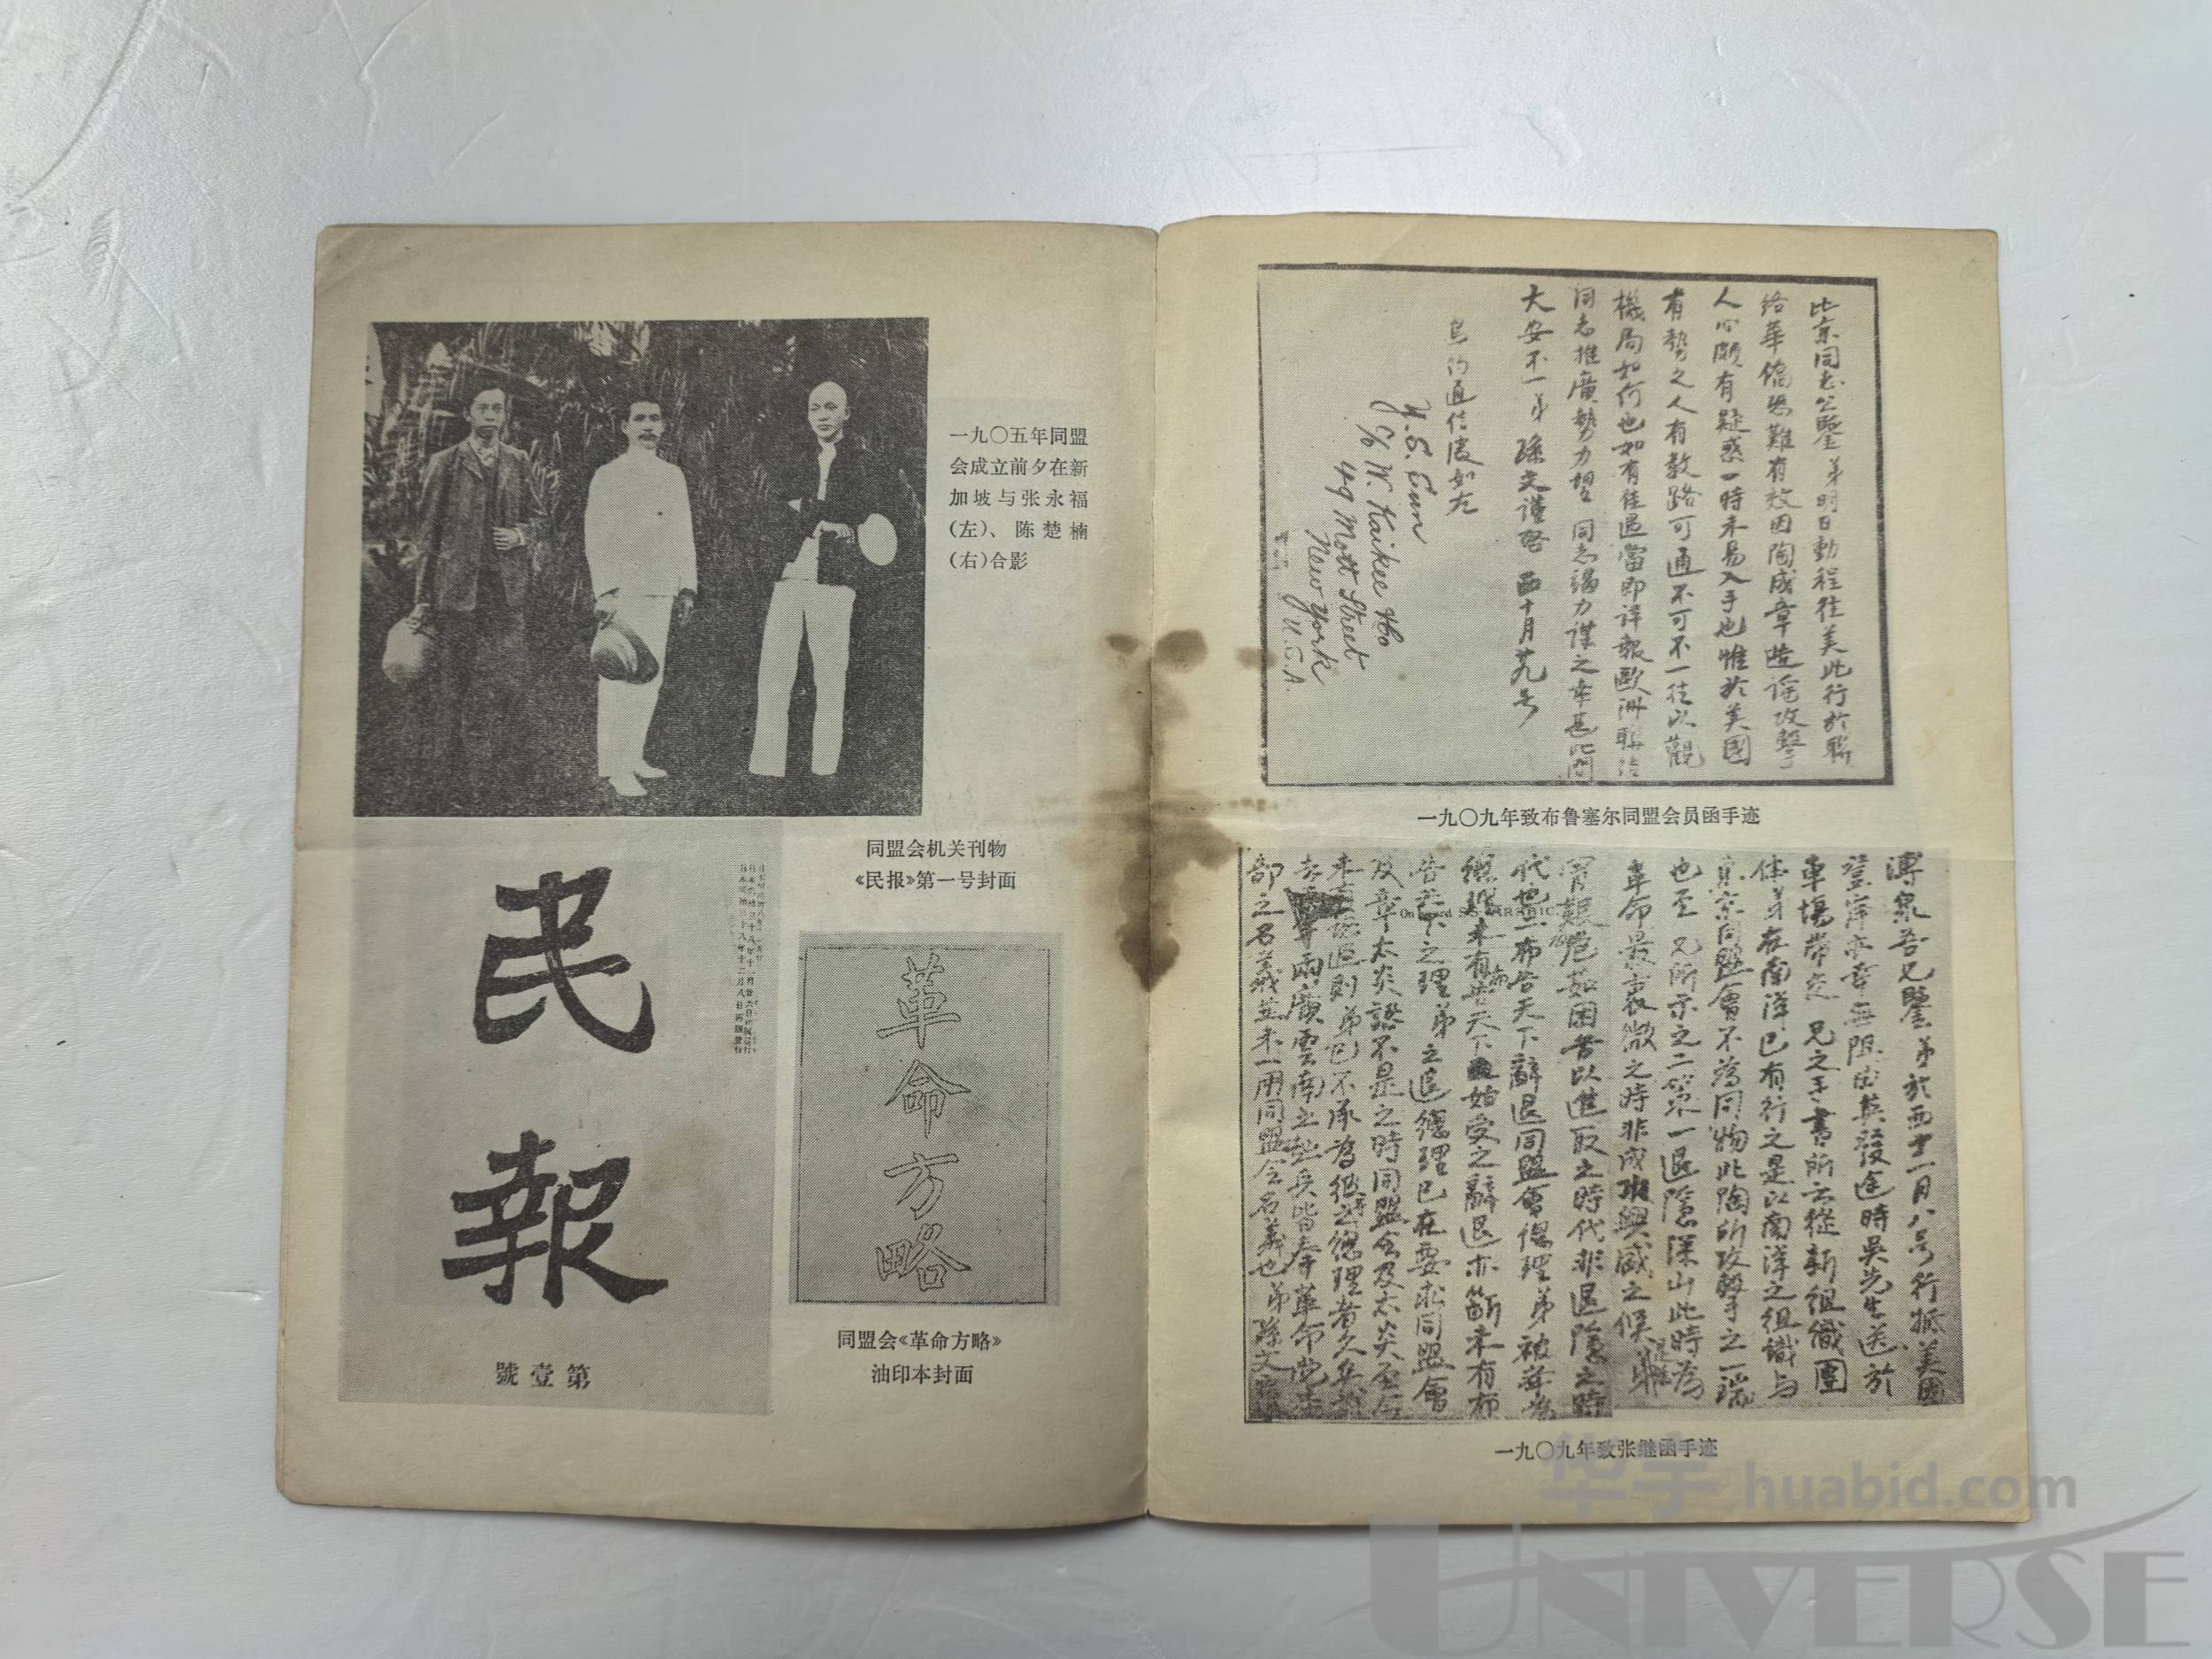 一九〇五年同盟
会成立前夕在新
加坡与张永福
(左)、陈楚楠
(右)合影
同盟会机关刊物
《民报》第一号封面
民報
第壹號
革命方略
同盟会《革命方略》
油印本封面
比京同志公鑒弟明日動程往美此行於聯
絡華僑恐難有效因陶成章造謠攻擊
人心頗有疑惑一時未易入手也惟於美國
有勢之人有数路可通不可不一往以觀
機局如何也如有佳遇當即详報歐洲聯絡
同志推廣勢力望 同志竭力謀之幸甚此問
大安不一 弟 孫文謹啓 西十月廿九号
紐约通信处如左
Y. S. Sun
c/o W. Kaikee Ho
49 Mott Street
New York
U.S.A.
一九〇九年致布鲁塞尔同盟会员函手迹
溥泉吾兄鑒弟於西十一月八号行抵美國
登岸亦幸無阻由英發途時吳先生送於
車塲帶交 兄之手書所云從新组織團
体弟在南洋已有行之是以南洋之组織与
東京同盟會不為同物此陶所攻擊之一端
也至 兄所示之二策一退隐深山此時為
革命最衰微之時非成功興盛之候
冒艱危茹困苦以進取之時代非退隐之時
代也二布告天下辭退同盟會總理弟被举為
總理未有布告天下始受之辭退亦斷未有布
告天下之理弟之退總理已在要求同盟會
及章太炎認不是之時同盟会及太炎至今
未有認过则弟已不承為彼之總理者久矣
去年兩廣雲南之起兵皆奉革命党本
部之名義並未一用同盟会名義也弟孫文
On board S.S. ARABIC
一九〇九年致张继函手迹
华宇 huabid.com
UNIVERSE